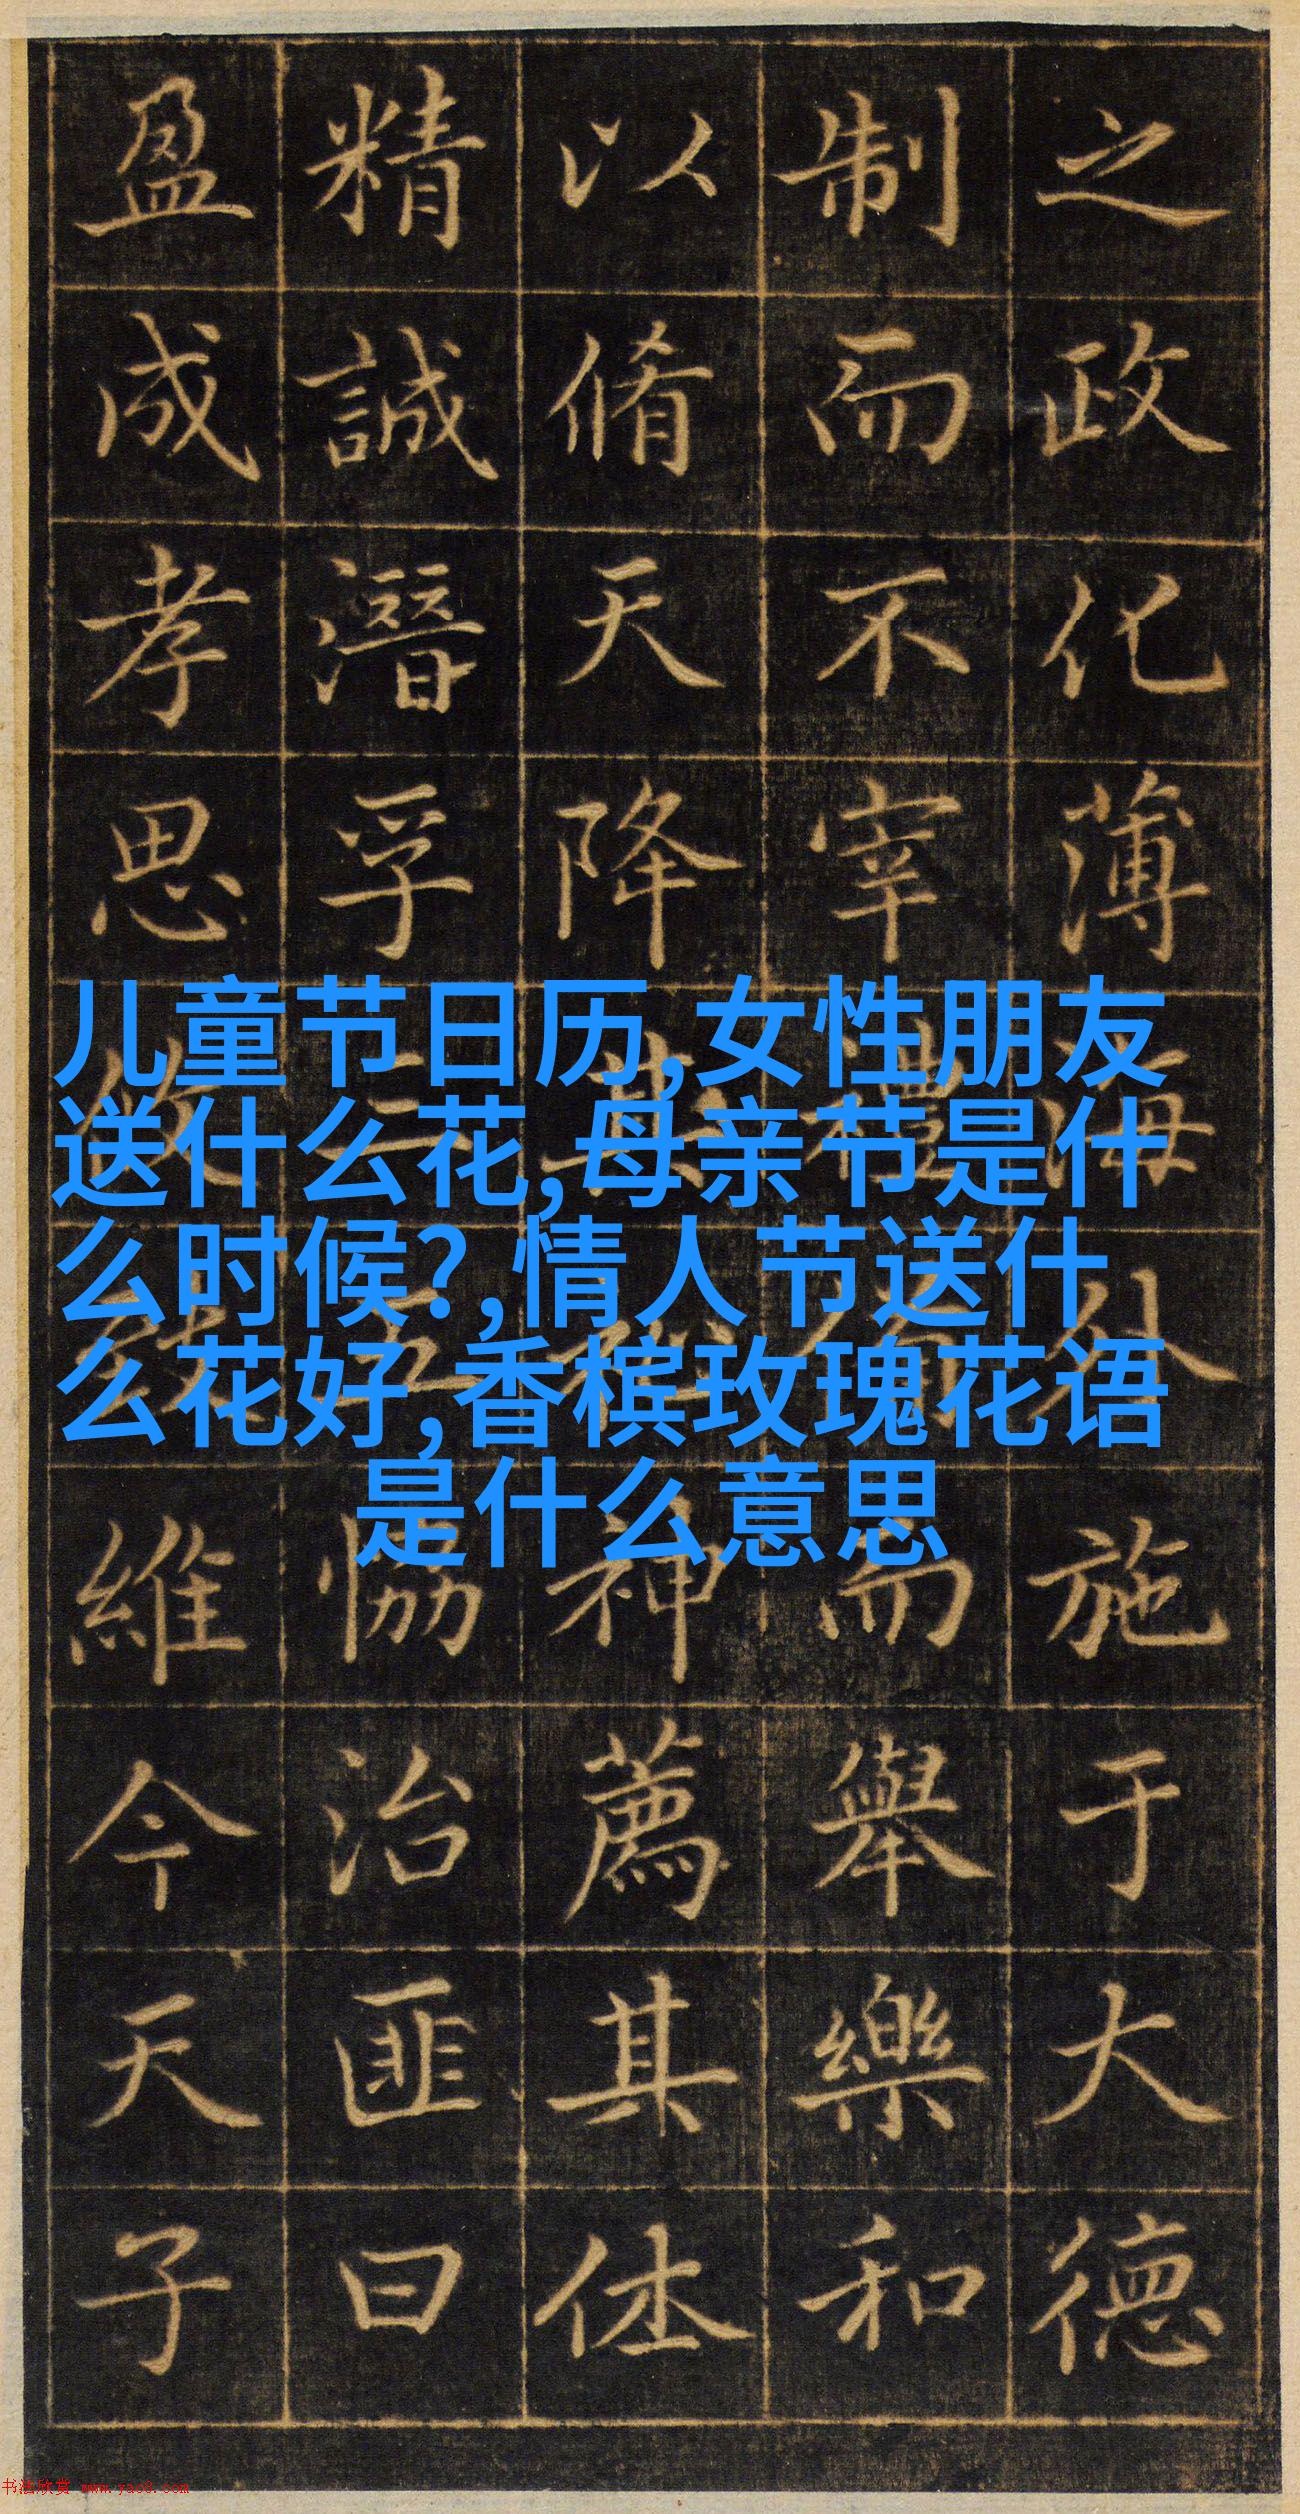 之政化薄海外施于大德
制而不宰禮而舉樂和
以脩天降其神薦其休
精誠潛孚三五恊治匪曰
盈成孝思維今天子
儿童节日历,女性朋友
送什么花,母亲节是什
么时候?,情人节送什
么花好,香槟玫瑰花语
是什么意思
书法欣赏 www.yac8.com